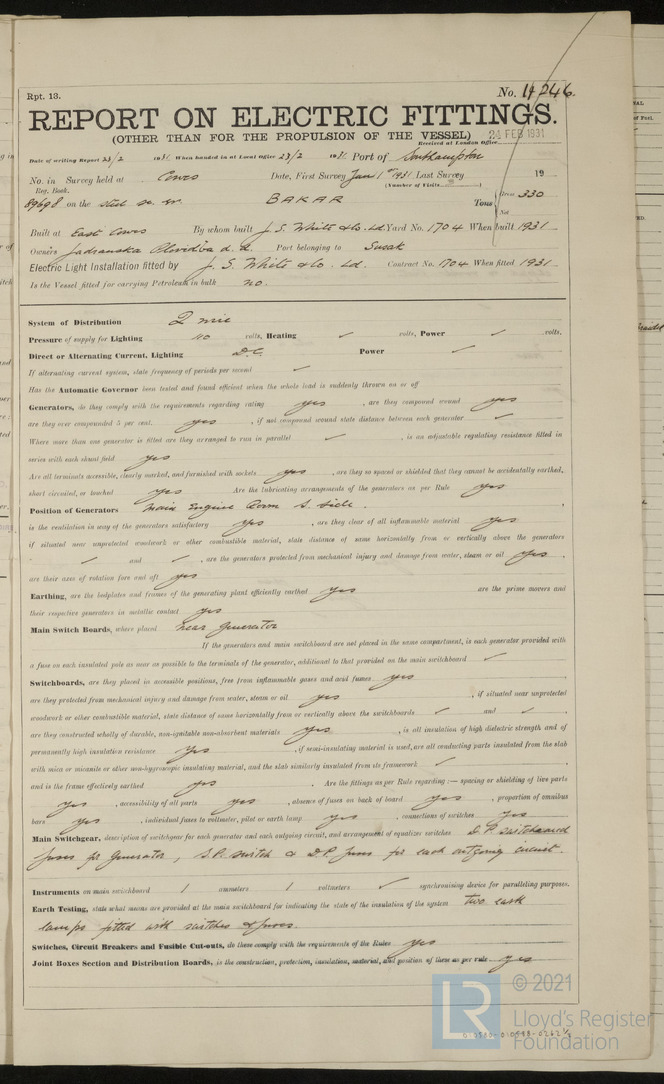 Rpt. 13.
No. 11246.
REPORT ON ELECTRIC FITTINGS.
(OTHER THAN FOR THE PROPULSION OF THE VESSEL)
24 FEB 1931
Received at London Office
Date of writing Report 23/2 1931. When handed in at Local Office 23/2 1931. Port of Southampton
No. in Survey held at Cowes Date, First Survey Jan 1st 1931 Last Survey 19
Reg. Book. (Number of Visits )
89698 on the Steel BAKAR Tons { Gross 330
Net
Built at East Cowes By whom built J. S. White & Co. Ld Yard No. 1704 When built 1931
Owners Jadranska Plovidba d. d. Port belonging to Susak
Electric Light Installation fitted by J. S. White & Co. Ld. Contract No. 1704 When fitted 1931
Is the Vessel fitted for carrying Petroleum in bulk no.
System of Distribution 2 wire
Pressure of supply for Lighting 110 volts, Heating ✓ volts, Power ✓ volts.
Direct or Alternating Current, Lighting D.C. Power ✓
If alternating current system, state frequency of periods per second ✓
Has the Automatic Governor been tested and found efficient when the whole load is suddenly thrown on or off
Generators, do they comply with the requirements regarding rating yes , are they compound wound yes
are they over compounded 5 per cent. yes , if not compound wound state distance between each generator ✓
Where more than one generator is fitted are they arranged to run in parallel ✓ , is an adjustable regulating resistance fitted in
series with each shunt field yes
Are all terminals accessible, clearly marked, and furnished with sockets yes , are they so spaced or shielded that they cannot be accidentally earthed,
short circuited, or touched yes Are the lubricating arrangements of the generators as per Rule yes
Position of Generators Main Engine Room S. side.
is the ventilation in way of the generators satisfactory yes , are they clear of all inflammable material yes
if situated near unprotected woodwork or other combustible material, state distance of same horizontally from or vertically above the generators
✓ and ✓ , are the generators protected from mechanical injury and damage from water, steam or oil yes .
are their axes of rotation fore and aft yes
Earthing, are the bedplates and frames of the generating plant efficiently earthed yes are the prime movers and
their respective generators in metallic contact yes
Main Switch Boards, where placed near generator
If the generators and main switchboard are not placed in the same compartment, is each generator provided with
a fuse on each insulated pole as near as possible to the terminals of the generator, additional to that provided on the main switchboard ✓
Switchboards, are they placed in accessible positions, free from inflammable gases and acid fumes yes
are they protected from mechanical injury and damage from water, steam or oil yes , if situated near unprotected
woodwork or other combustible material, state distance of same horizontally from or vertically above the switchboards ✓ and ✓
are they constructed wholly of durable, non-ignitable non-absorbent materials yes , is all insulation of high dielectric strength and of
permanently high insulation resistance yes , if semi-insulating material is used, are all conducting parts insulated from the slab
with mica or micanite or other non-hygroscopic insulating material, and the slab similarly insulated from its framework ✓
and is the frame effectively earthed yes . Are the fittings as per Rule regarding:— spacing or shielding of live parts
yes , accessibility of all parts yes , absence of fuses on back of board yes , proportion of omnibus
bars yes , individual fuses to voltmeter, pilot or earth lamp yes , connections of switches yes
Main Switchgear, description of switchgear for each generator and each outgoing circuit, and arrangement of equalizer switches D.P. switch and
fuses for generator, S.P. switch & D.P. fuses for each outgoing circuit.
Instruments on main switchboard 1 ammeters 1 voltmeters ✓ synchronising device for paralleling purposes.
Earth Testing, state what means are provided at the main switchboard for indicating the state of the insulation of the system two earth
lamps fitted with switches & fuses.
Switches, Circuit Breakers and Fusible Cut-outs, do these comply with the requirements of the Rules yes
Joint Boxes Section and Distribution Boards, is the construction, protection, insulation, material, and position of these as per rule yes
© 2021
LR
Lloyd's Register
Foundation